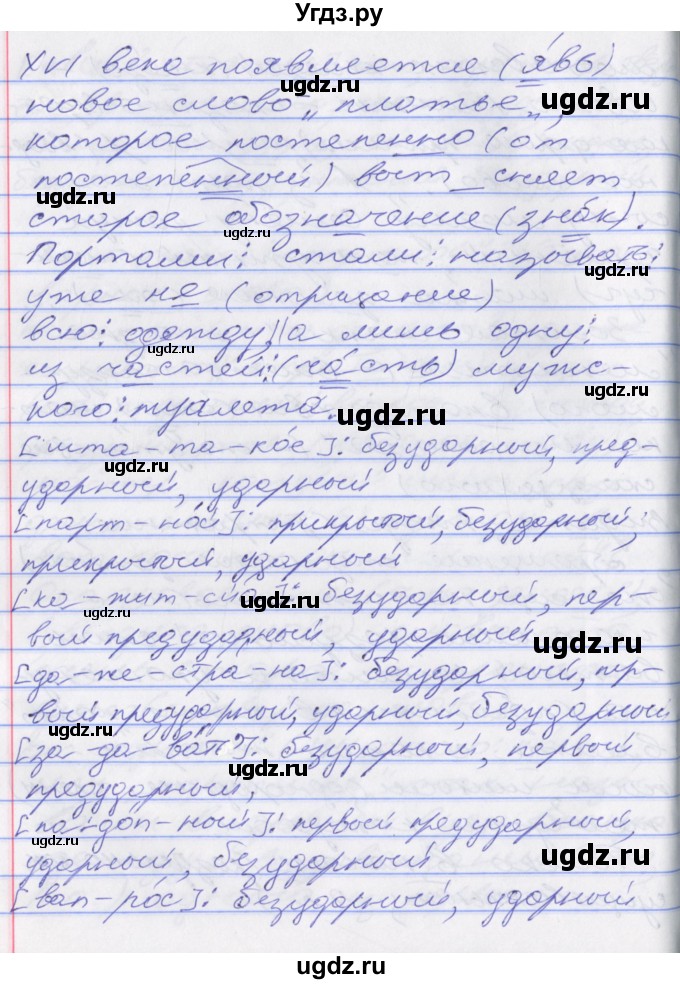 Угдз.ру
XVI века появляется (я́вь)
ugdz.ru
новое слово „ платье „ ,
ugdz.ru
которое постепенно (от
постепенный) выт_сняет
ugdz.ru
старое обозначение (зна́к).
ugdz.ru
Портами; стали; называть;
ugdz.ru
уже не (отрицание)
всю: одежду, //а лишь одну;
ugdz.ru
из частей:(ча́сть) мужс-
кого: туалета.
ugdz.ru
[шта-та-ко́е]: безударный, пред-
ugdz.ru
ударный, ударный
ugdz.ru
[парт-но́й]: прикрытый, безударный,
ugdz.ru
прикрытый, ударный
ugdz.ru
[ка-жит-сиа]: безударный, пер-
ugdz.ru
вый предударный, ударный
ugdz.ru
[да-же-стра-на]: безударный, пер-
ugdz.ru
вый предударный, ударный, безударный
[за-да-ва́т']: безударный, первый
ugdz.ru
предударный,
[па-до́п-ный]: первый предударный,
ugdz.ru
ударный, безударный
ugdz.ru
[вап-ро́с]: безударный, ударный
ugdz.ru
ugdz.ru